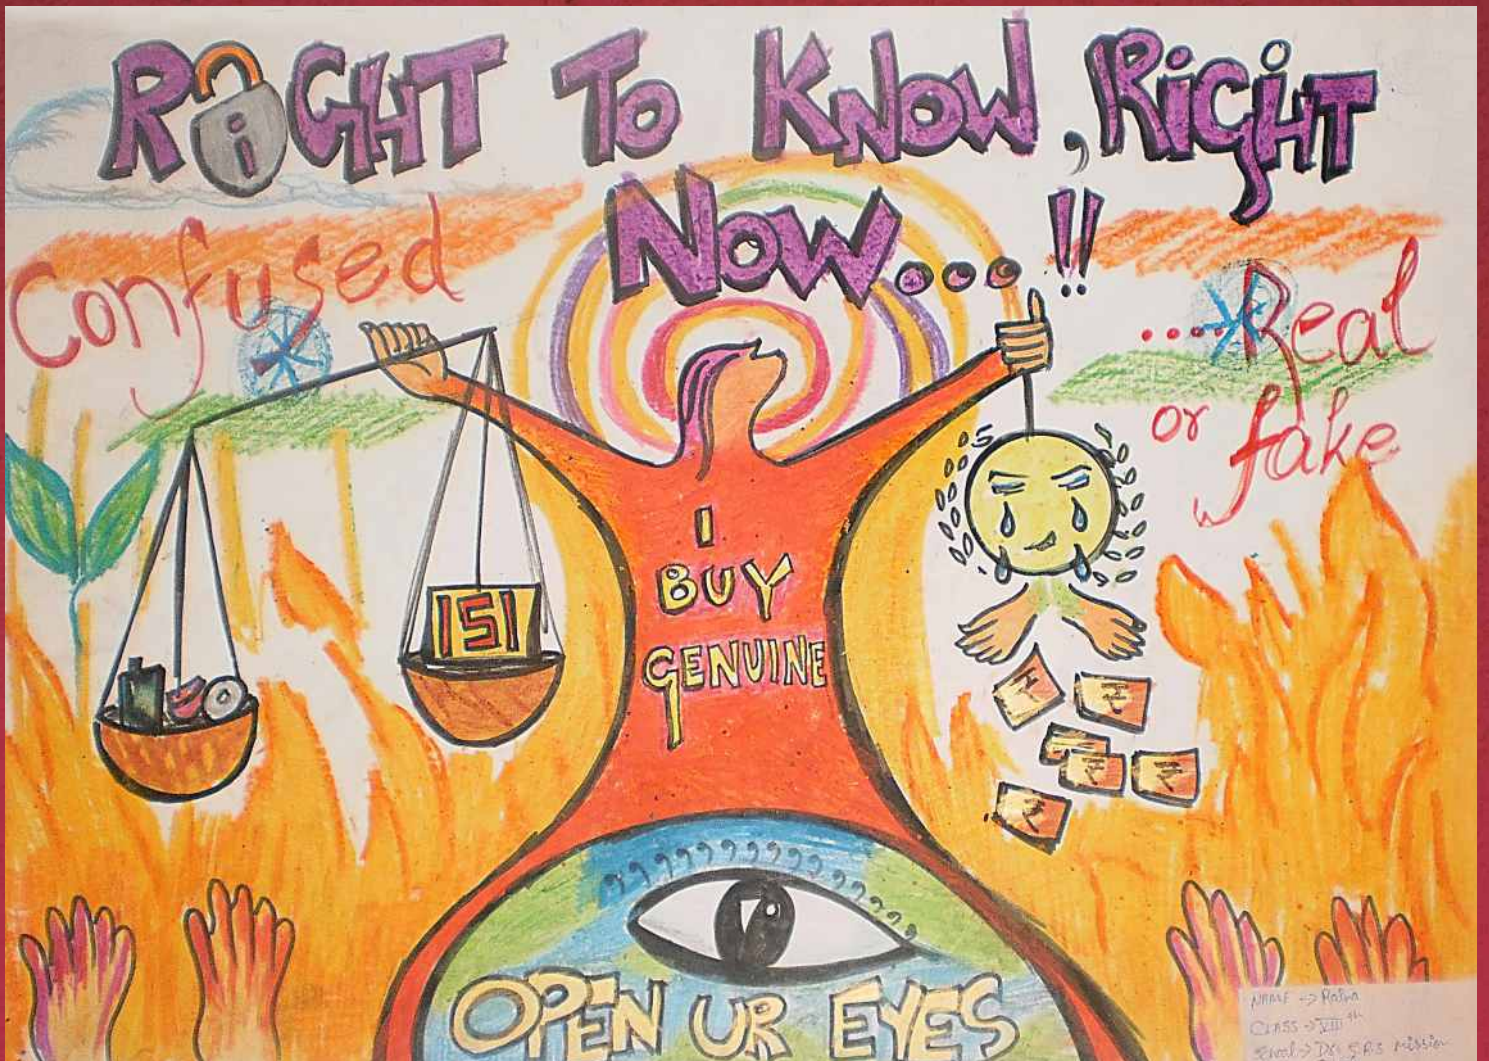 RiGHT TO KNOW, RiGHT
NOW...!!
Confused
....Real
or fake
I
BUY
GENUINE
ISI
₹ ₹
₹ ₹
₹
OPEN UR EYES
NAME →
CLASS → VIIIth
School → S.R.S mission